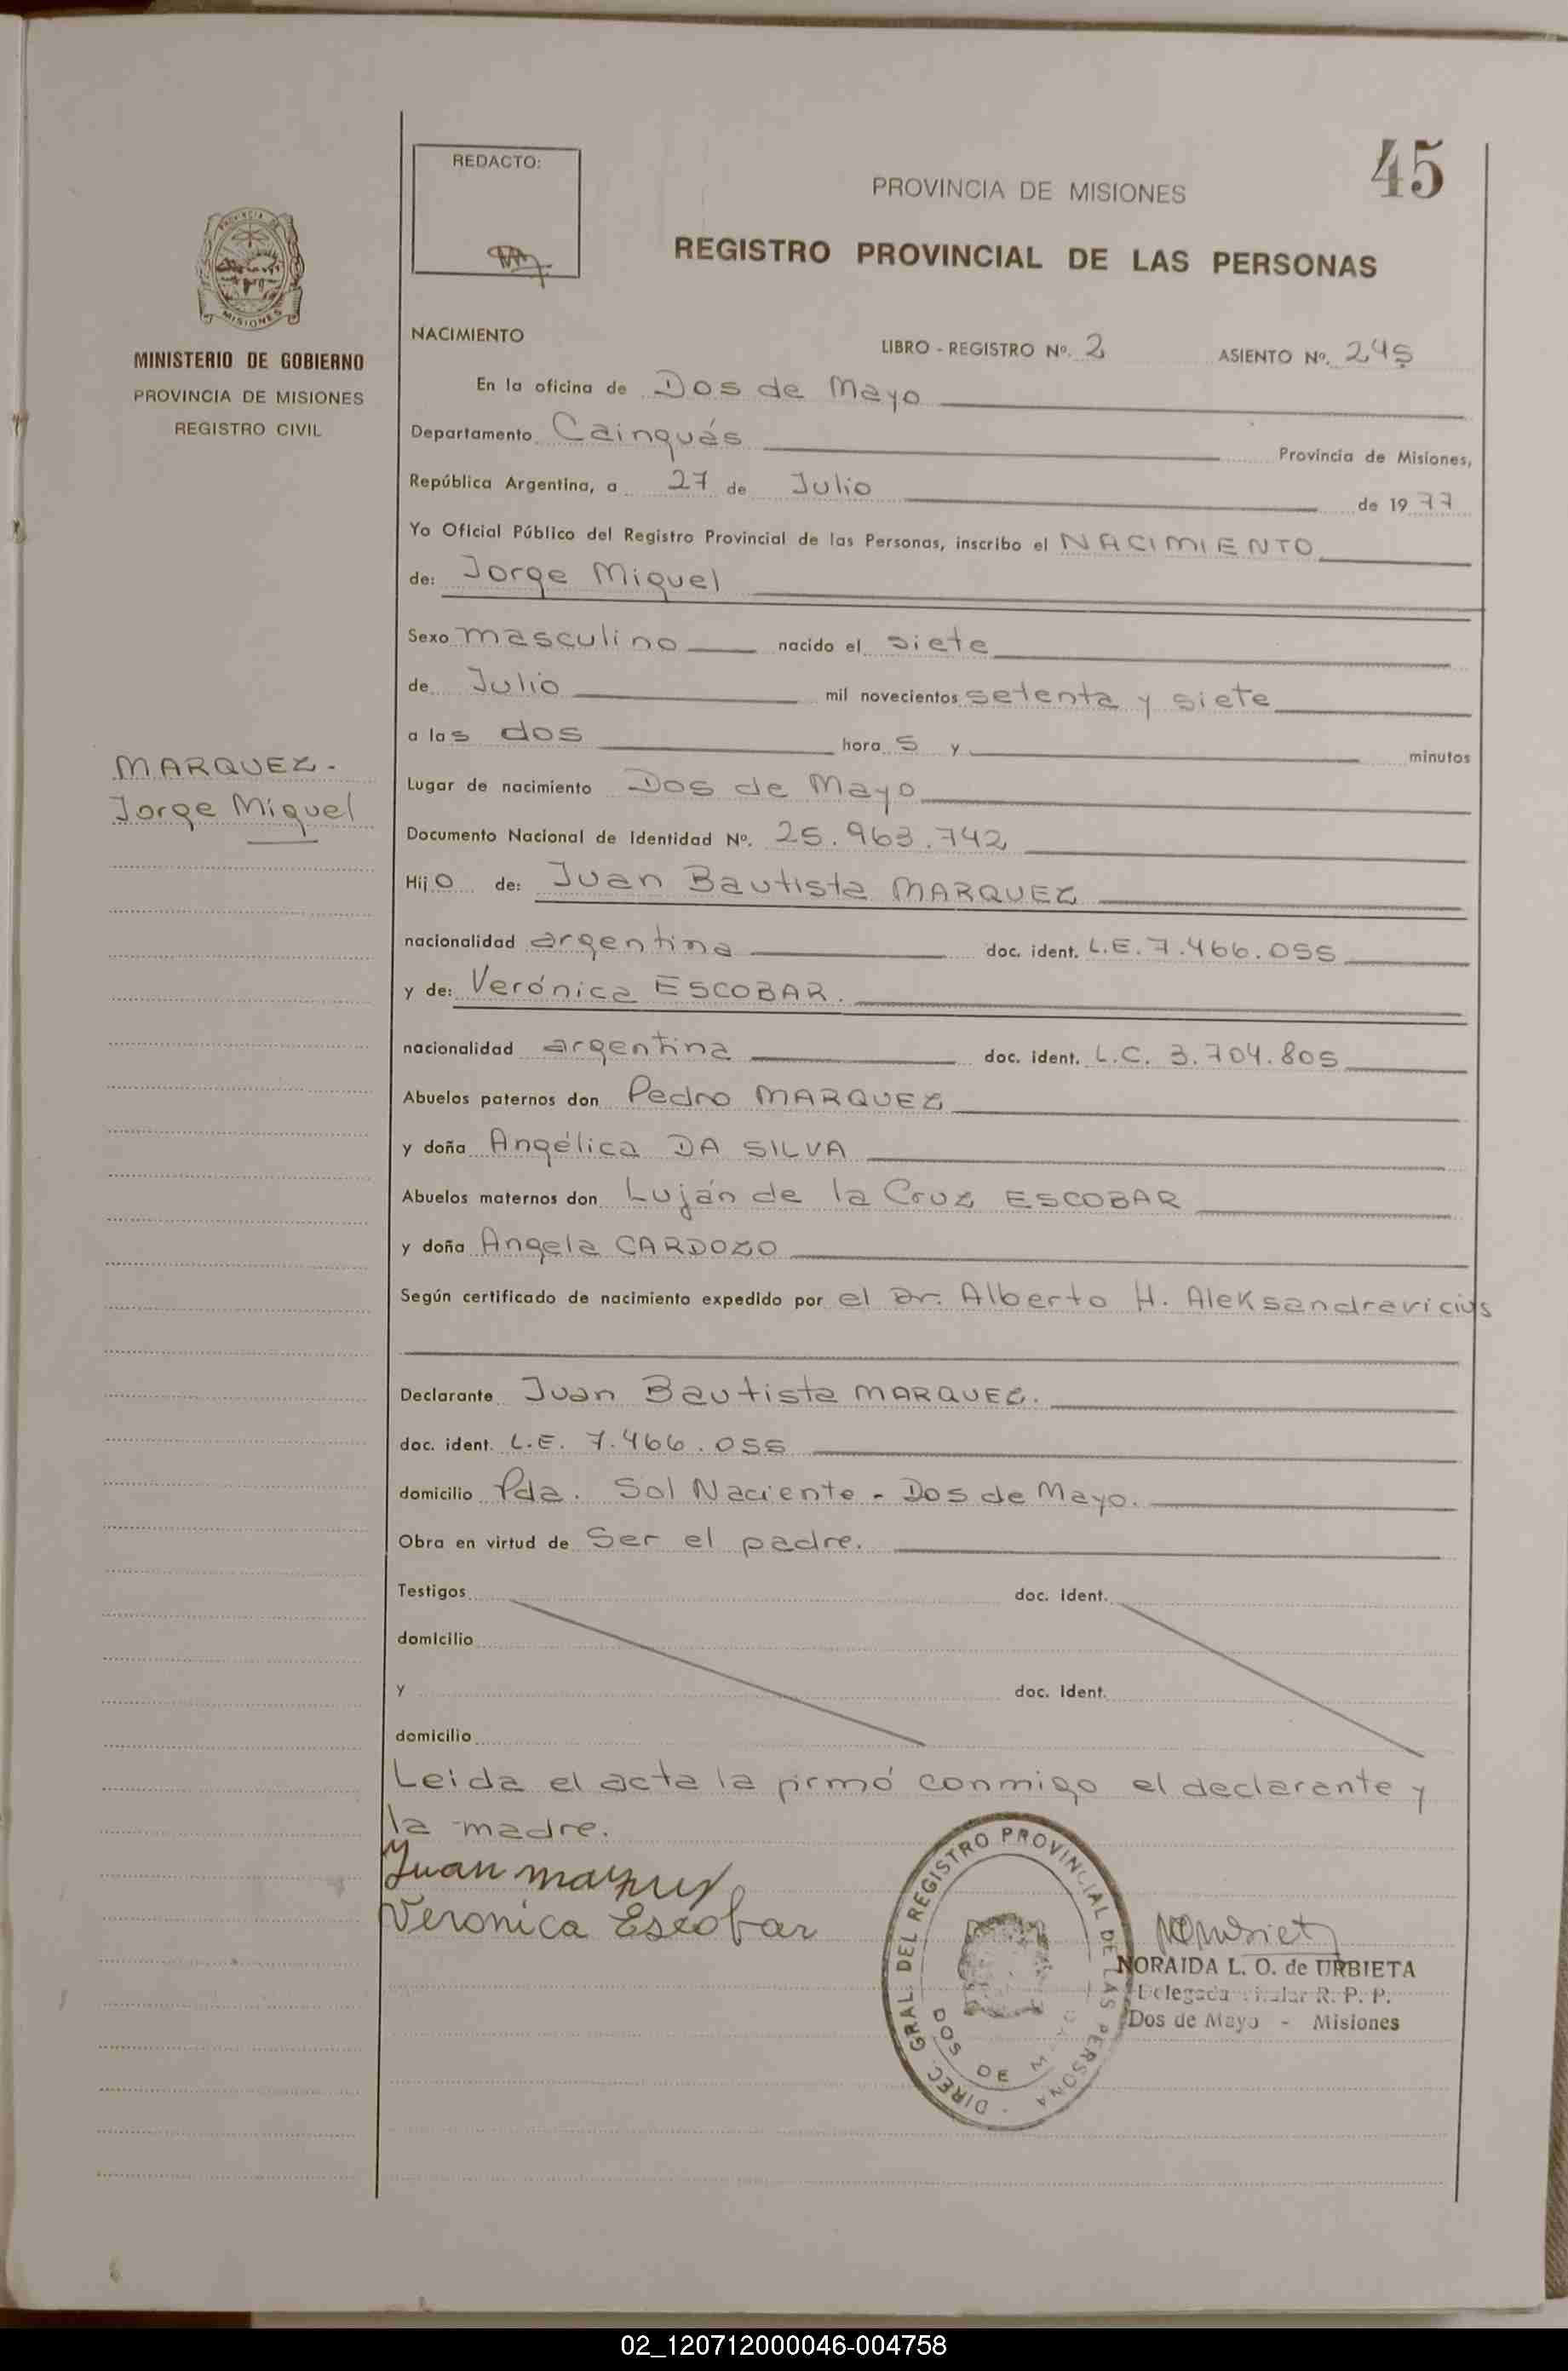 45
REDACTO:
PROVINCIA DE MISIONES
REGISTRO PROVINCIAL DE LAS PERSONAS
MISIONES
MINISTERIO DE GOBIERNO
PROVINCIA DE MISIONES
REGISTRO CIVIL
MARQUEZ.-
Jorge Miguel
NACIMIENTO
LIBRO - REGISTRO Nº. 2 ASIENTO Nº. 245
En la oficina de Dos de Mayo
Departamento Cainguás Provincia de Misiones,
República Argentina, a 27 de Julio de 1977
Yo Oficial Público del Registro Provincial de las Personas, inscribo el NACIMIENTO
de: Jorge Miguel
Sexo masculino nacido el siete
de Julio mil novecientos setenta y siete
a las dos horas y minutos
Lugar de nacimiento Dos de Mayo
Documento Nacional de Identidad Nº. 25.963.742
Hijo de: Juan Bautista MARQUEZ
nacionalidad argentina doc. ident. L.E. 7.466.055
y de: Verónica ESCOBAR.
nacionalidad argentina doc. ident. L.C. 3.704.805
Abuelos paternos don Pedro MARQUEZ
y doña Angélica DA SILVA
Abuelos maternos don Luján de la Cruz ESCOBAR
y doña Angela CARDOZO
Según certificado de nacimiento expedido por el Dr. Alberto H. Aleksandravicius
Declarante Juan Bautista MARQUEZ.
doc. ident. L.E. 7.466.055
domicilio Pda. Sol Naciente - Dos de Mayo.
Obra en virtud de Ser el padre.
Testigos doc. ident.
domicilio
y doc. ident.
domicilio
Leida el acta la firmó conmigo el declarante y
la madre.
Juan Marquez
Veronica Escobar
DIREC. GRAL. DEL REGISTRO PROVINCIAL DE LAS PERSONA
DOS DE MAYO
NORAIDA L. O. de URBIETA
Delegada Titular R. P. P.
Dos de Mayo - Misiones
02_120712000046-004758